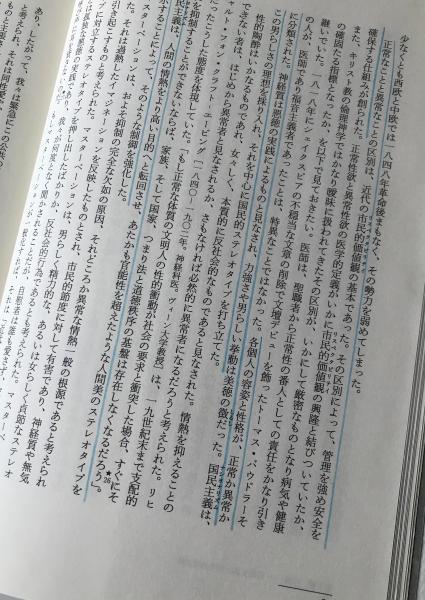 少なくとも西欧と中欧では一八四八年革命後まもなく、その勢力を弱めてしまった。
正常なことと異常なことの区別は、近代の市民的価値観の基本であった。その区別によって、管理を強め安全を
確保する仕組みが創られた。正常性欲と異常性欲の医学的定義がいかに市民的価値観の興隆と結びついていたか、
また、キリスト教の倫理神学ではかなり曖昧に扱われてきたその区別が、いかにして厳密なものとなり病気や健康
の確固たる指標となったか、を以下で見ておきたい。医師は、聖職者から正常性の番人としての責任をかなり引き
継いでいた。一八一八年にシェイクスピアの不穏当な文章の削除で文壇デビューを飾ったトーマス・バウドラーそ
の人が、医師であり福音主義者であったことは、特異なことではなかった。各個人の容姿と性格が、正常か異常か
に分類された。神経質は悪徳の実践によるものと見なされ、力強さや男らしい挙動は美徳の徴だった。国民主義は、
この男らしさの理想を採り入れ、それを中心に国民的ステレオタイプを打ち立てた。
性的陶酔はいかなるものであれ、女々しく、本質的に反社会的なものであると見なされた。情熱を抑えることの
できない者は、はじめから異常者と見なされるか、さもなければ必然的に異常者になるだろうと考えられた。リヒ
ャルト・フォン・クラフト=エービング〔一八四〇―一九〇二年。神経科医、ヴィーン大学教授〕は、一九世紀末まで支配的
だったこうした態度を体現していた。「もし正常な体質の文明人の性的衝動が社会の要求と衝突した場合、すぐにそ
を抑制することができないならば、家族、そして国家、つまり法と道徳秩序の基盤は存在しなくなるだろう」。★26
民主義は、人間の情熱をより高い目的へと転回させ、あたかも官能性を超えたような人間美のステレオタイプを
示することによって、そのような制御を強化した。
スターベーションは、およそ抑制の完全な欠如の原因、それどころか異常な情熱一般の根源であると考えられ
た。それは過熱したイマジネーションを反映したものとされ、市民的節度に対して有害であり、神経質や無気
引き起こすものと考えられた。マスターベーションは、男らしく精力的な、あるいは女らしく貞節なステレオ
プに対立するステレオタイプを押し出したばかりか、反社会的行為であるとも考えられた。